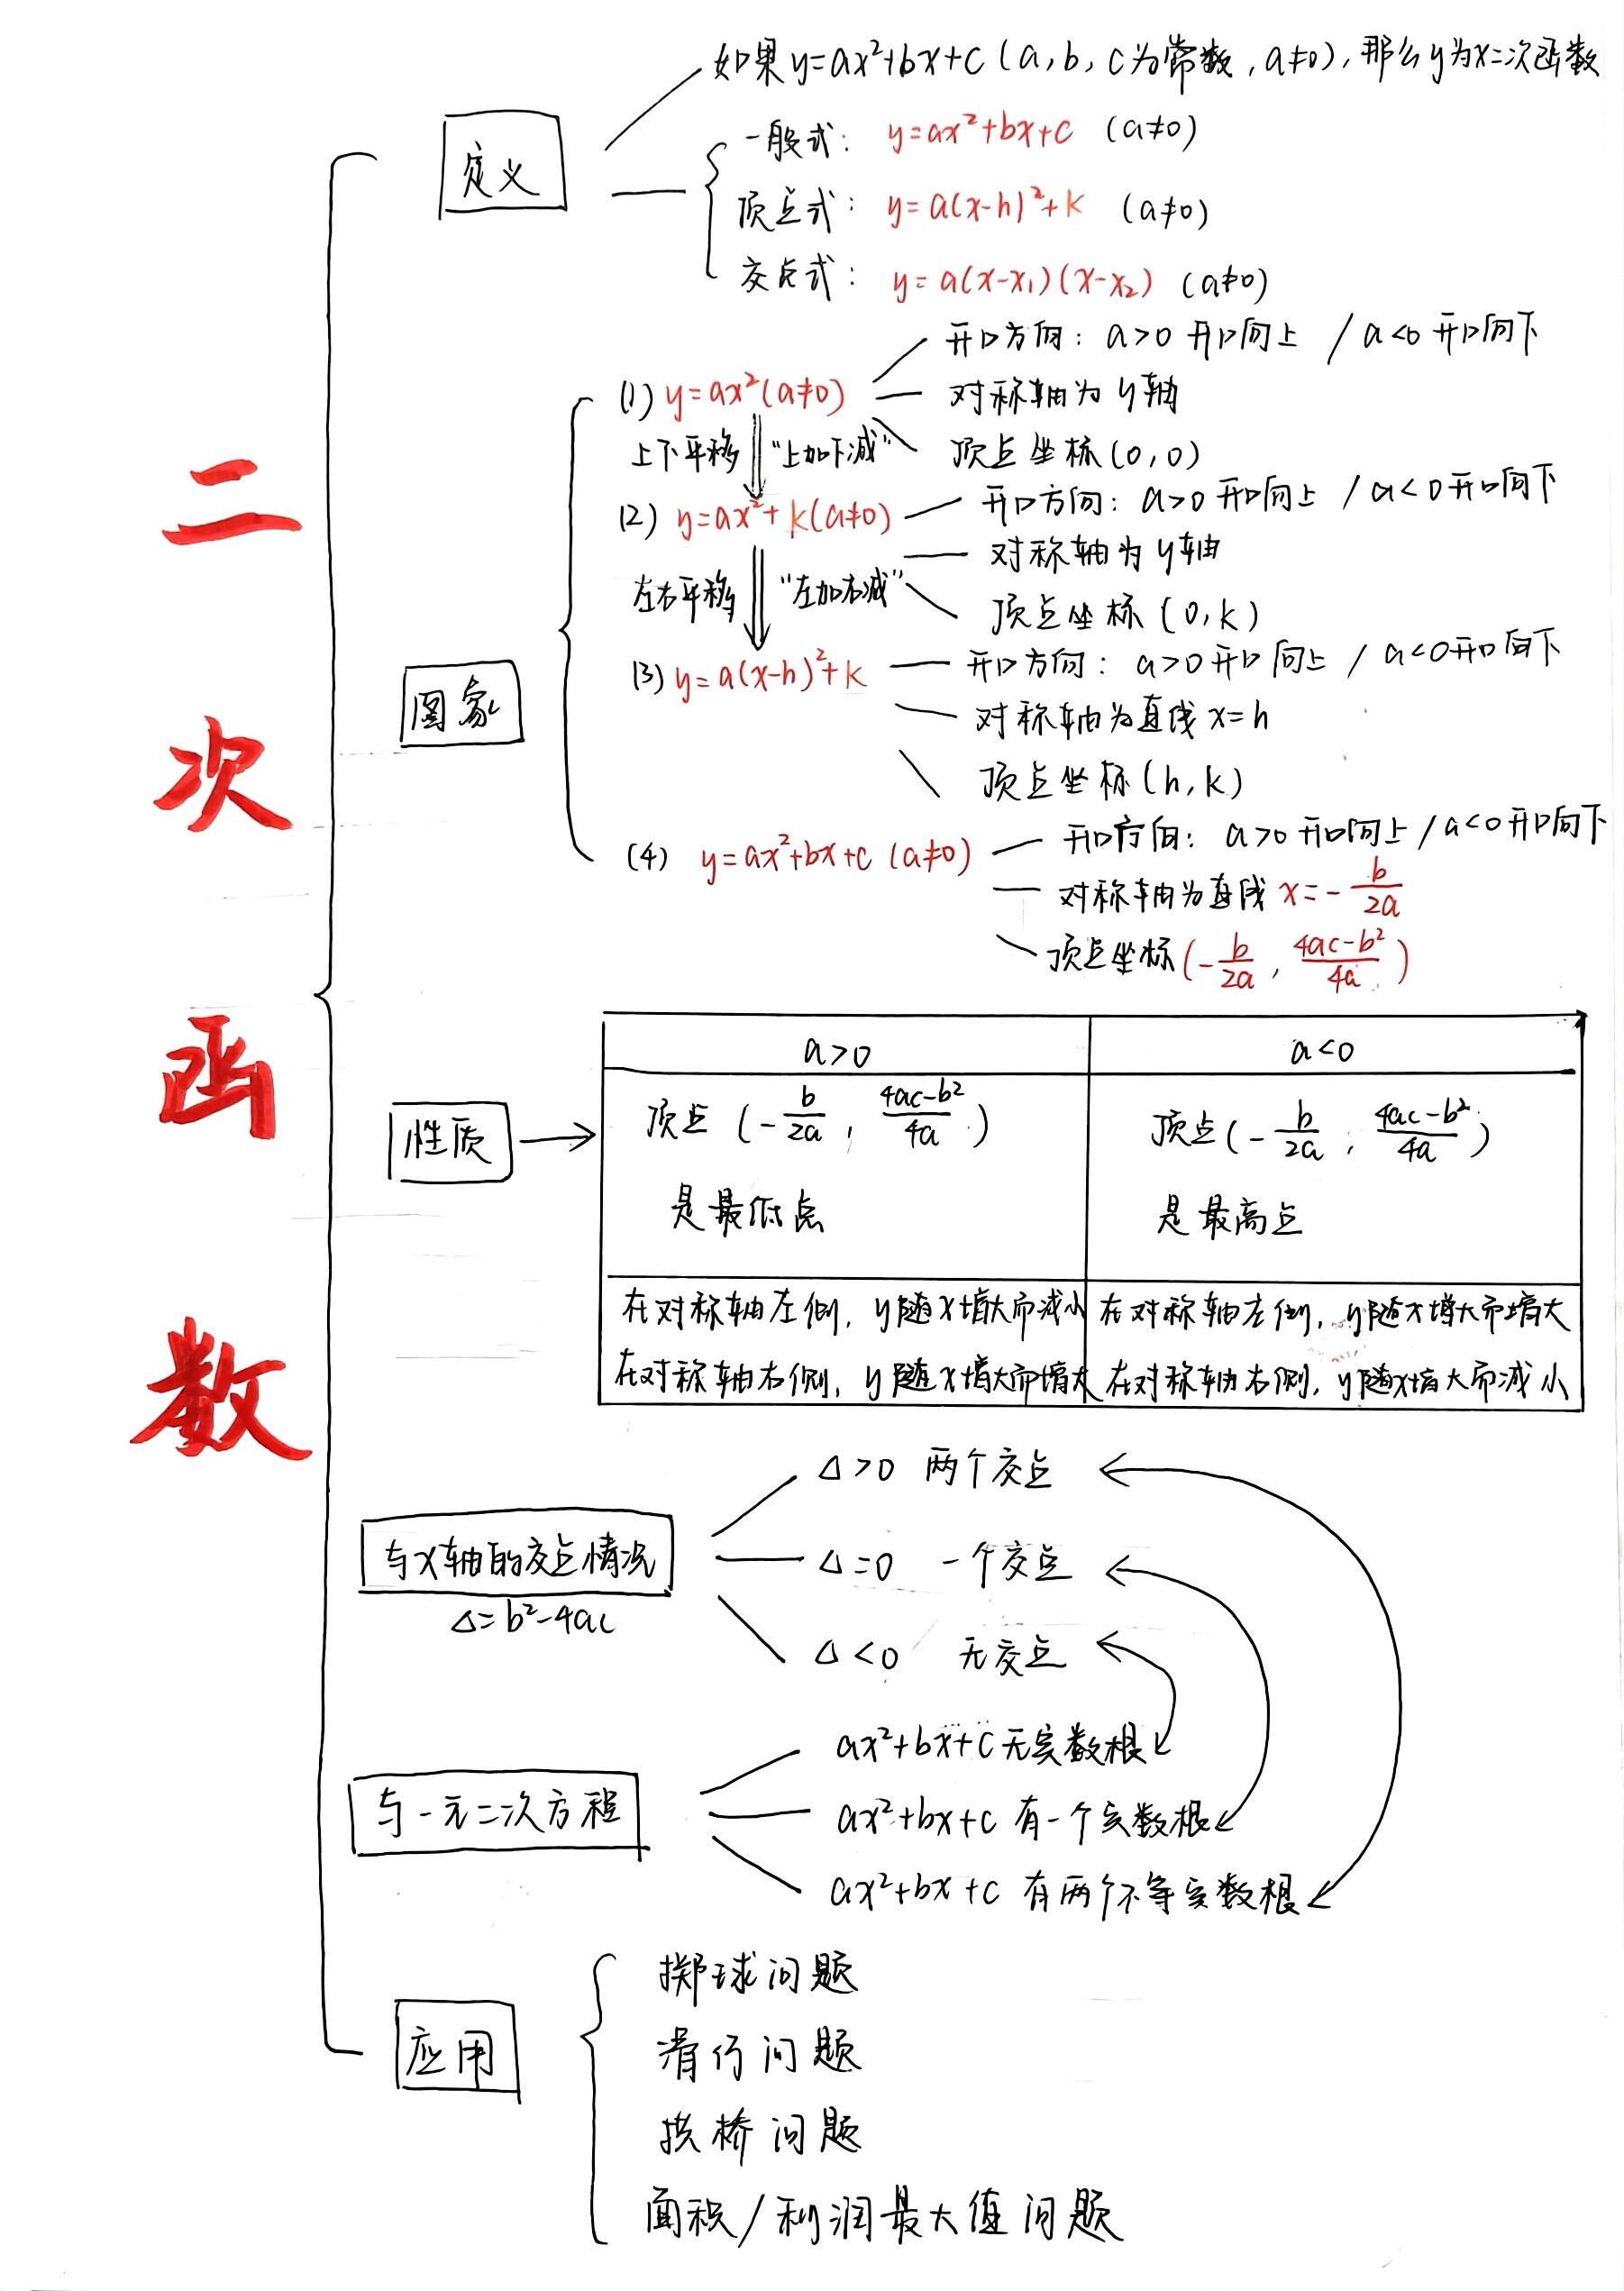 二次函数
定义
如果y=ax²+bx+c(a,b,c为常数,a≠0),那么y为x二次函数
一般式: y=ax²+bx+c (a≠0)
顶点式: y=a(x-h)²+k (a≠0)
交点式: y=a(x-x₁)(x-x₂) (a≠0)
图象
(1) y=ax²(a≠0)
开口方向: a>0 开口向上 / a<0 开口向下
对称轴为y轴
顶点坐标(0,0)
上下平移 "上加下减"
(2) y=ax²+k(a≠0)
开口方向: a>0 开口向上 / a<0 开口向下
对称轴为y轴
顶点坐标(0,k)
左右平移 "左加右减"
(3) y=a(x-h)²+k
开口方向: a>0 开口向上 / a<0 开口向下
对称轴为直线x=h
顶点坐标(h,k)
(4) y=ax²+bx+c (a≠0)
开口方向: a>0 开口向上 / a<0 开口向下
对称轴为直线 x=-b/2a
顶点坐标(-b/2a, 4ac-b²/4a)
性质
a>0
a<0
顶点 (-b/2a, 4ac-b²/4a)
是最低点
顶点(-b/2a, 4ac-b²/4a)
是最高点
在对称轴左侧, y随x增大而减小
在对称轴右侧, y随x增大而增大
在对称轴左侧, y随x增大而增大
在对称轴右侧, y随x增大而减小
与x轴的交点情况
Δ=b²-4ac
Δ>0 两个交点
Δ=0 一个交点
Δ<0 无交点
与一元二次方程
ax²+bx+c无实数根
ax²+bx+c 有一个实数根
ax²+bx+c 有两个不等实数根
应用
掷球问题
滑行问题
拱桥问题
面积/利润最大值问题